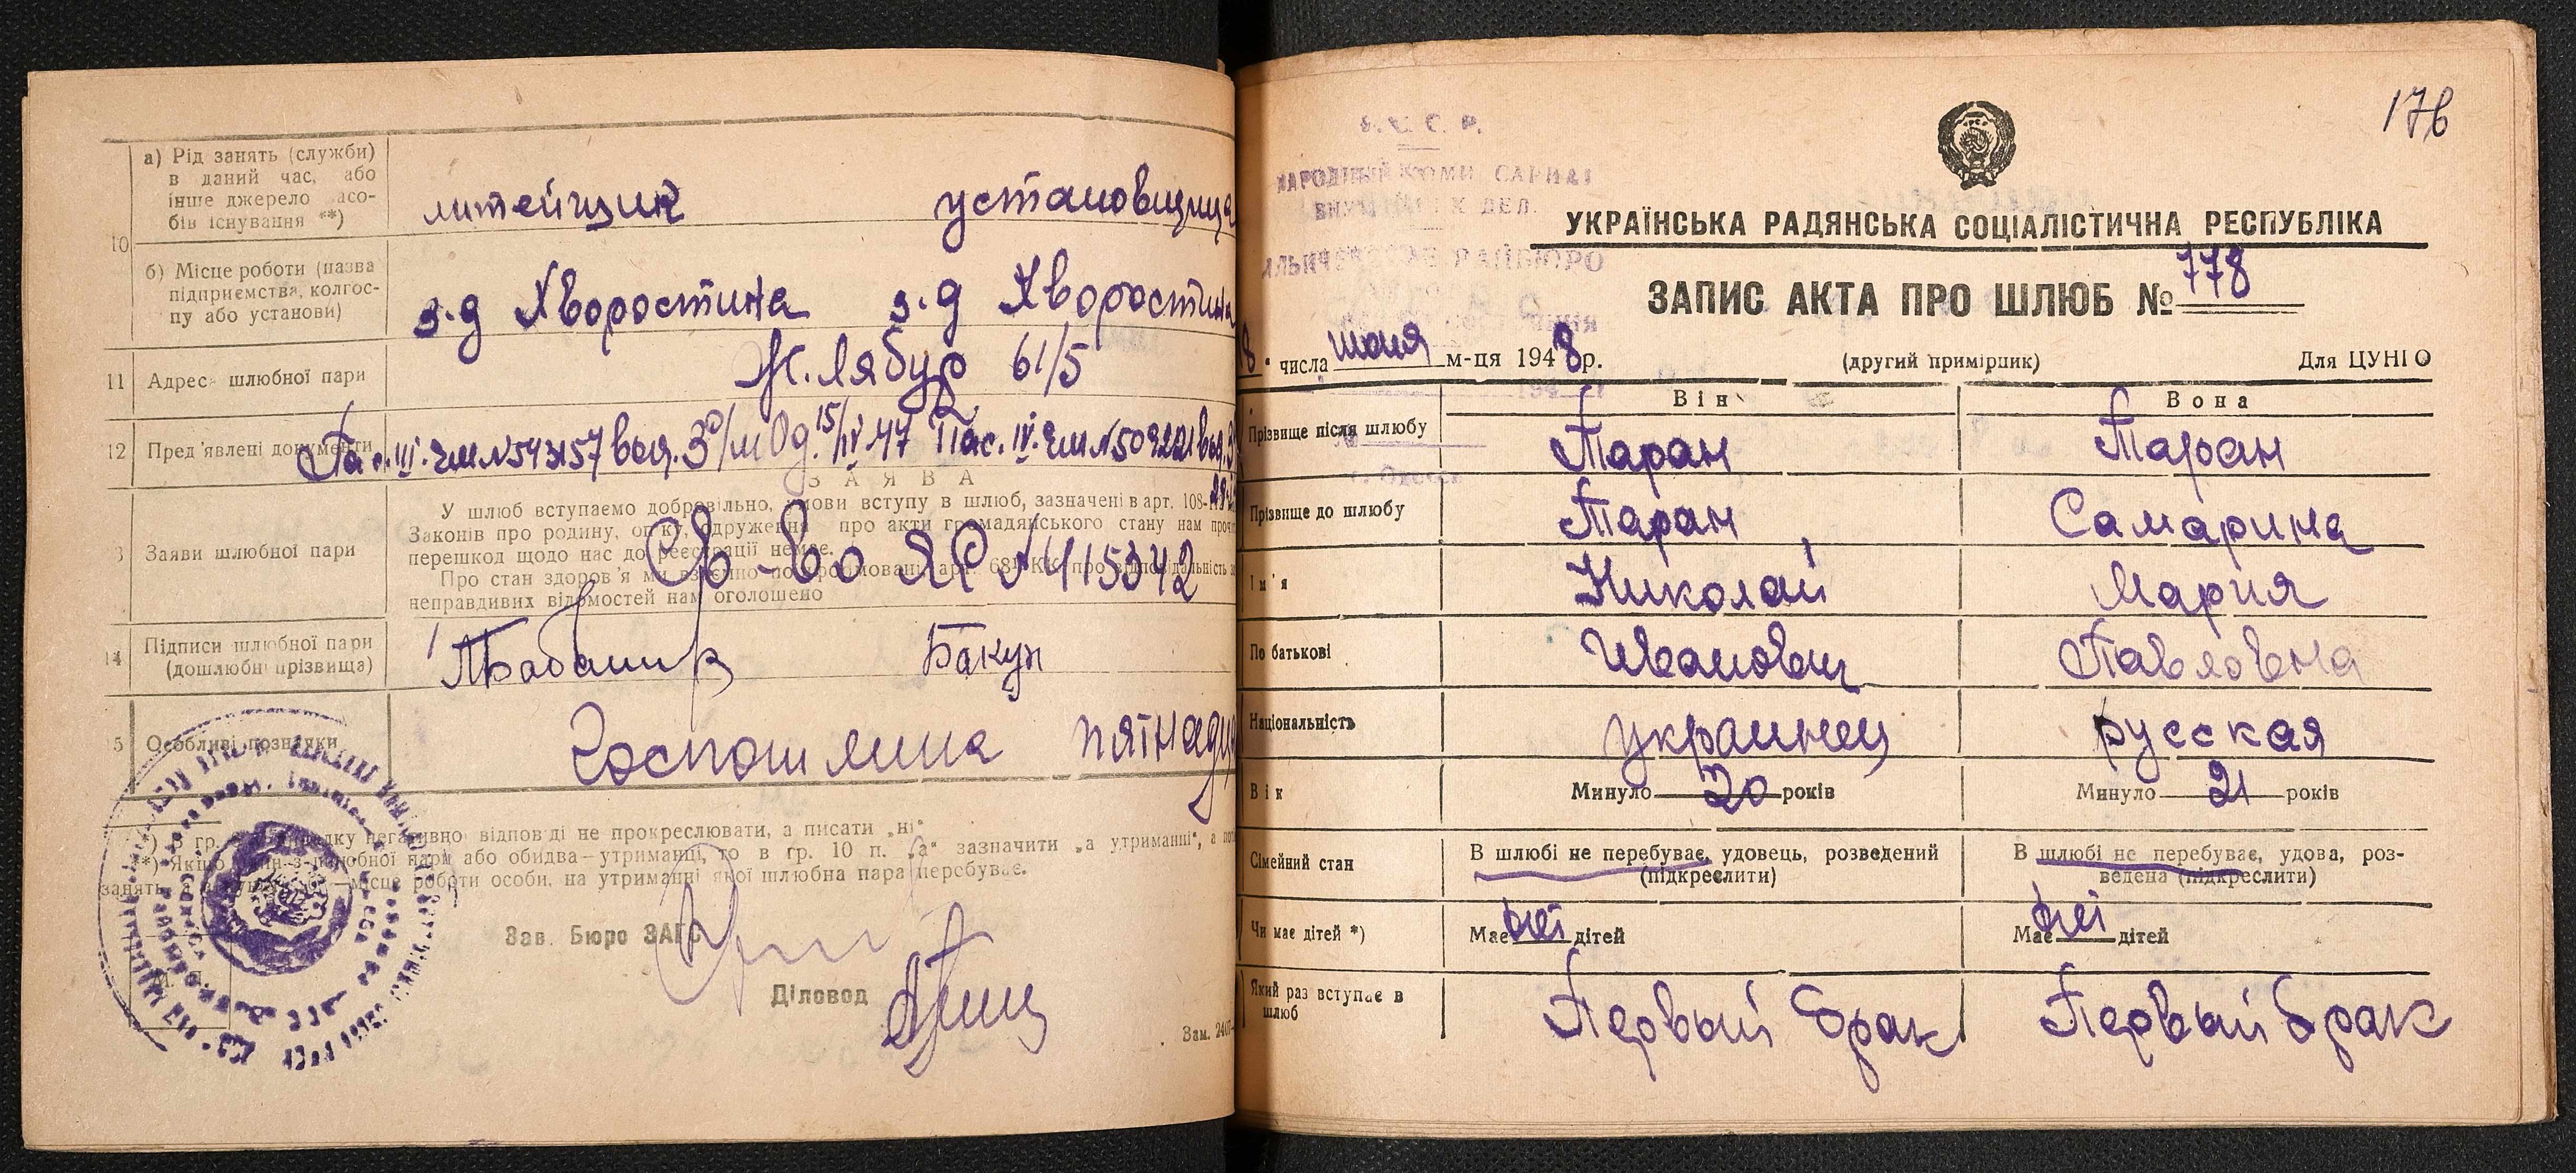 10
а) Рід занять (служби)
в даний час, або
інше джерело засо-
бів існування **)
литейщик установщица
б) Місце роботи (назва
підприємства, колгос-
пу або установи)
з.д Хворостина з.д Хворостина
11 Адреса шлюбної пари
Ж. Лябур 61/5
12 Пред'явлені документи
III. N543157 выд. 15/IV 47 Пас. IV.
ЗАЯВА
Заяви шлюбної пари
У шлюб вступаємо добровільно, умови вступу в шлюб, зазначені в арт. 108-
Законів про родину, опіку, одруження про акти громадянського стану нам
перешкод щодо нас до реєстрації немає.
Про стан здоров'я ми взаємно поінформовані арт. 68 КК про відповідальність
неправдивих відомостей нам оголошено
Св-во ЯР N 415342
14 Підписи шлюбної пари
(дошлюбні прізвища)
Бакун
Особливі познаки
Госпошлина
гр. негативної відповіді не прокреслювати, а писати „ні"
**) Якщо шлюбної пари або обидва—утриманці, то в гр. 10 п. „а" зазначити „а утриманні", а
занять місце роботи особи, на утриманні якої шлюбна пара перебуває.
Зав. Бюро ЗАГС
Діловод
Зам.
176
НАРОДНЫЙ КОМИССАРИАТ
УКРАЇНСЬКА РАДЯНСЬКА СОЦІАЛІСТИЧНА РЕСПУБЛІКА
ЗАПИС АКТА ПРО ШЛЮБ № 778
8 " числа июня м-ця 1948р. (другий примірник) Для ЦУНГО
Він Вона
Прізвище після шлюбу Таран Таран
Прізвище до шлюбу Таран Самарина
Ім'я Николай Мария
По батькові Иванович Павловна
Національність украинец русская
Вік Минуло 20 років Минуло 21 років
Сімейний стан В шлюбі не перебуває, удовець, розведений В шлюбі не перебуває, удова, роз-
(підкреслити) ведена (підкреслити)
Чи має дітей *) Має дітей Має дітей
Який раз вступає в
шлюб Первый брак Первый брак